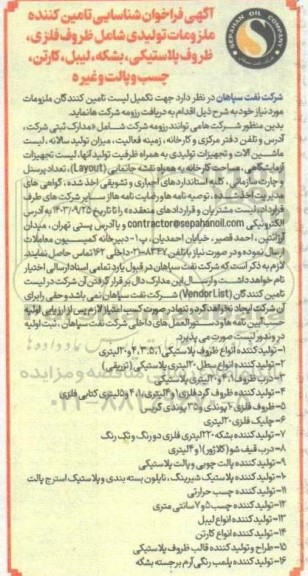 SEPAHAN OIL COMPANY
آگهی فراخوان شناسایی تامین کننده
ملزومات تولیدی شامل ظروف فلزی،
ظروف پلاستیکی، بشکه، لیبل، کارتن،
چسب و پالت و غیره
شرکت نفت سپاهان در نظر دارد جهت تکمیل لیست تامین کنندگان ملزومات
مورد نیاز خود به شرح ذیل اقدام به دریافت رزومه شرکت ها نماید.
بدین منظور شرکت ها می توانند رزومه شرکت شامل «مدارک ثبتی شرکت،
آدرس و تلفن دفتر مرکزی و کارخانه، زمینه فعالیت، میزان تولید سالانه، لیست
ماشین آلات و تجهیزات تولیدی به همراه ظرفیت تولید آنها، لیست تجهیزات
آزمایشگاهی، مساحت کارخانه به همراه نقشه جانمایی (Layout)، تعداد پرسنل
و چارت سازمانی، کلیه استانداردهای اجباری و تشویقی اخذ شده، گواهی های
مدیریت اخذ شده، توصیه نامه ها و رضایت نامه ها از سایر شرکت های طرف
قرارداد، لیست مشتریان و قراردادهای منعقده» را تا تاریخ ۱۴۰۳/۰۹/۲۵ به آدرس
الکترونیکی contractor@sepahanoil.com و یا آدرس پستی تهران، میدان
آرژانتین، احمد قصیر، خیابان احمدیان، پ۱- دبیرخانه کمیسیون معاملات
ارسال نموده و در صورت نیاز با تلفن ۸۴۴۷-۰۲۱ داخلی ۱۶۲ تماس حاصل نمایند.
لازم به ذکر است که شرکت نفت سپاهان در قبول یا رد تمامی اسناد ارسالی اختیار
تام خواهد داشت و ارسال این مدارک دال بر قرار گرفتن آن شرکت در لیست
تامین کنندگان (Vendor List) شرکت نفت سپاهان نمی باشد و حقی را برای
آن شرکت ایجاد نخواهد کرد و تنها در صورت کسب امتیاز لازم پس از ارزیابی اولیه
حسب آیین نامه ها و دستورالعمل های داخلی شرکت نفت سپاهان، ثبت اولیه
در وندور لیست صورت می پذیرد.
۱- تولید کننده انواع ظروف پلاستیکی ۱، ۳، ۴، ۵ و ۲۰ لیتری
۲- تولید کننده انواع سطل ۲۰ لیتری پلاستیکی (تزریقی)
۳- درب ظروف ۱، ۴ و ۲۰ لیتری پلاستیکی
۴- تولید کننده ظروف گرد فلزی ۱ و ۴ لیتری، ۱، ۴ و ۵ لیتری کتابی فلزی
۵- ظروف فلزی ۱ پوندی و ۳۵ پوندی گریس
۶- جلیک فلزی ۲۰ لیتری
۷- تولید کننده بشکه ۲۲۰ لیتری فلزی دو رنگ و تک رنگ
۸- درب قیف شو (کلاژور) ۱ و ۴ لیتری
۹- تولید کننده پالت چوبی و پالت پلاستیکی
۱۰- تولید کننده پلاستیک شیرینگ، نایلون بسته بندی و پلاستیک استرچ پالت
۱۱- تولید کننده چسب حرارتی
۱۲- تولید کننده چسب ۵ و ۷ سانتی متری
۱۳- تولید کننده انواع لیبل
۱۴- تولید کننده انواع کارتن
۱۵- طراح و تولید کننده قالب ظروف پلاستیکی
۱۶- تولید کننده پلمب رنگی آرم برجسته بشکه